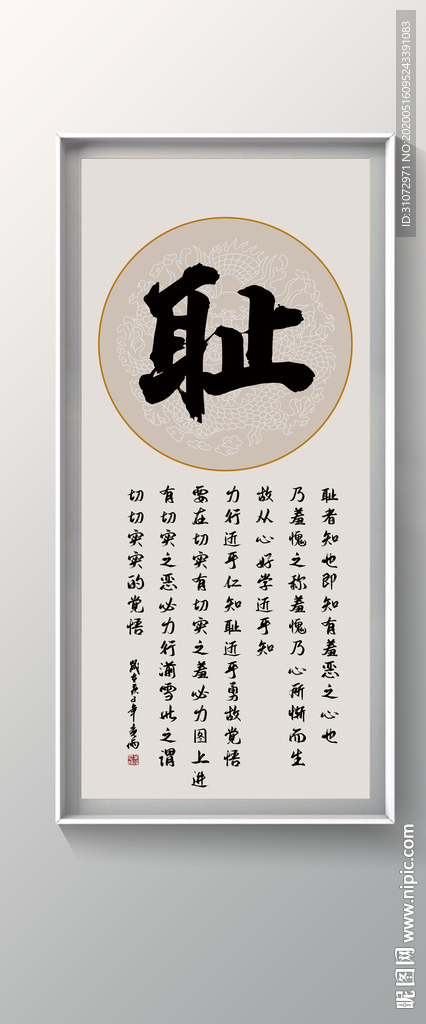 耻
耻者知也即知有羞恶之心也
乃羞愧之称羞愧乃心所惭而生
故从心好学近乎知
力行近乎仁知耻近乎勇故觉悟
要在切实有切实之羞必力图上进
有切实之恶必力行湔雪此之谓
切切实实的觉悟
ID:31072971 NO:20200516095243391083
昵图网 www.nipic.com